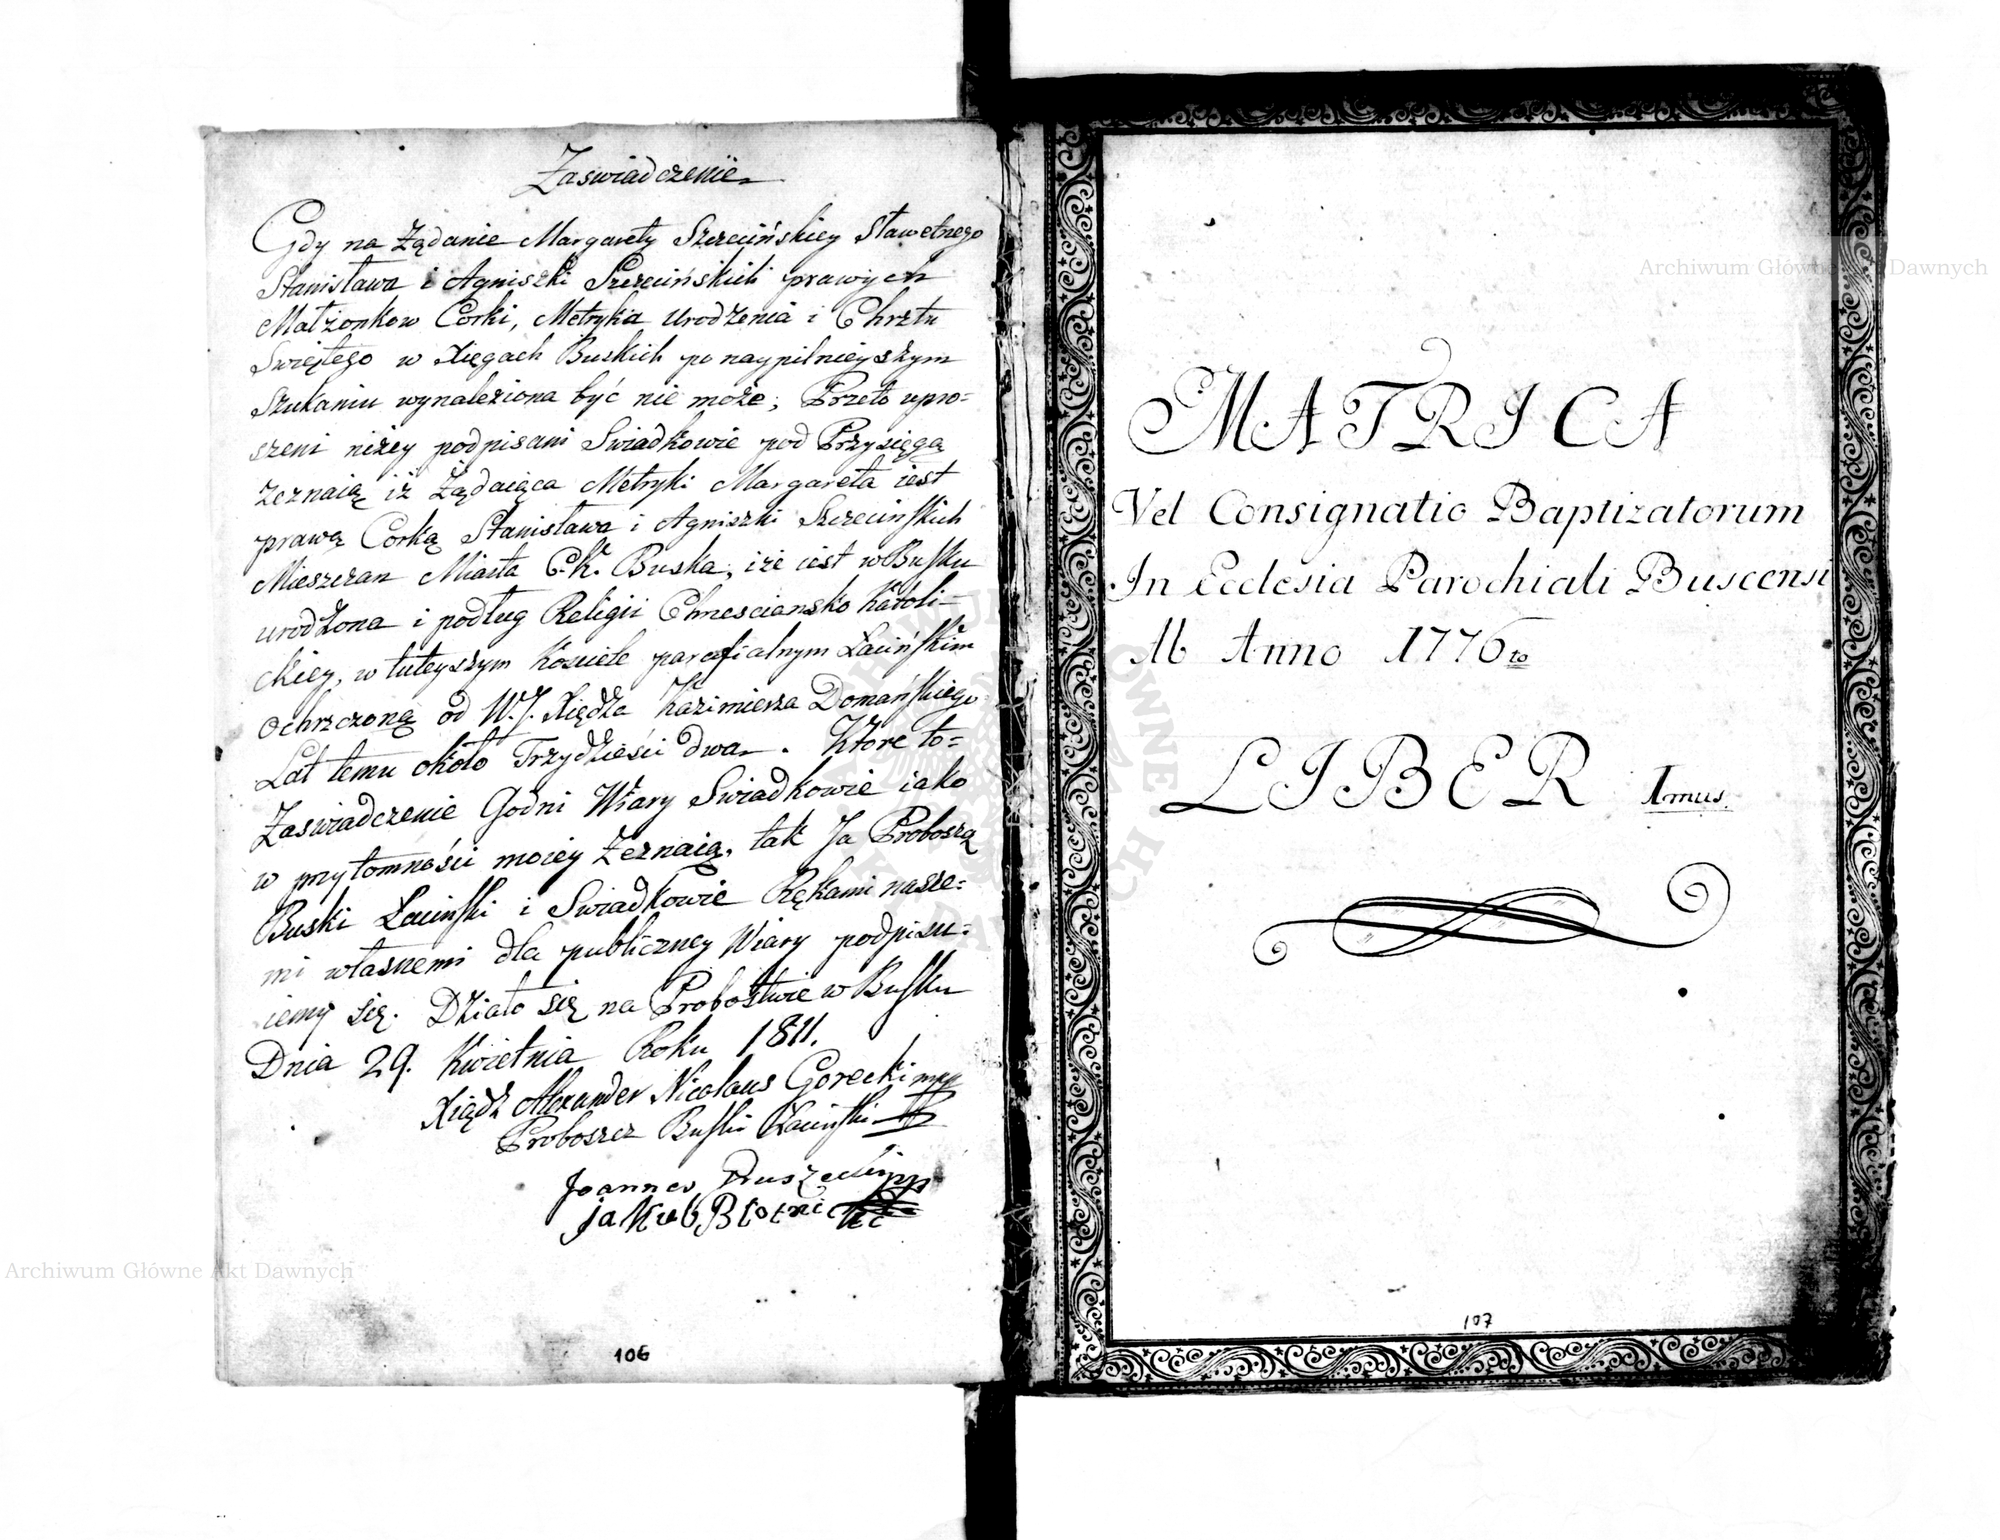 Zaswiadczenie
Gdy na Żądanie Margarety Szrecińskiey Sławetnego
Stanisława i Agniszki Szrecińskich prawych
Małżonkow Corki, Metryka Urodzenia i Chrztu
Swiętego w Xięgach Buskich po naypilnieyszym
szukaniu wynaleziona być nie może; Przeto upro=
szeni niżey podpisani Swiadkowie pod Przysięgą
zeznaią iż Żądaiąca Metryki Margareta iest
prawą Corką Stanisława i Agniszki Szrecinskich
Mieszczan Miasta C.K. Buska, iże iest w Busku
urodzona i podług Religii Chrzesciansko Katoli=
ckiey, w tuteyszym Kosciele parafialnym Łacińskim
ochrzczoną od W.J. Xiędza Kazimierza Domańskiego
Lat temu około Trzydzieści dwa. Ktore to=
Zaswiadczenie Godni Wiary Swiadkowie iako
w przytomności moiey Zeznaią, tak Ja Proboszcz
Buski Łacinski i Swiadkowie Rękami nasze=
mi własnemi dla publiczney Wiary podpisu=
iemy się. Działo się na Probostwie w Busku
Dnia 29. Kwietnia Roku 1811.
Xiądz Alexander Nicolaus Gorecki mpp
Proboszcz Buski Łacinski
Joannes
Jakub Błotnicki
106
MATRICA
Vel Consignatio Baptizatorum
In Ecclesia Parochiali Buscensi
Ab Anno 1776to
LIBER Imus.
107
Archiwum Główne Akt Dawnych
Archiwum Główne Akt Dawnych
ARCHIWUM GŁÓWNE AKT DAWNYCH